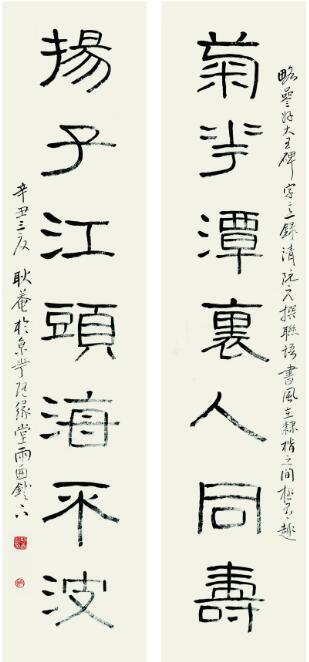 菊花潭裏人同壽
略參好大王碑字意錄清阮元撰聯語書風在隸楷之間極有趣
揚子江頭海不波
辛丑之夏耿菴於京華隨緣堂雨窗鐙下